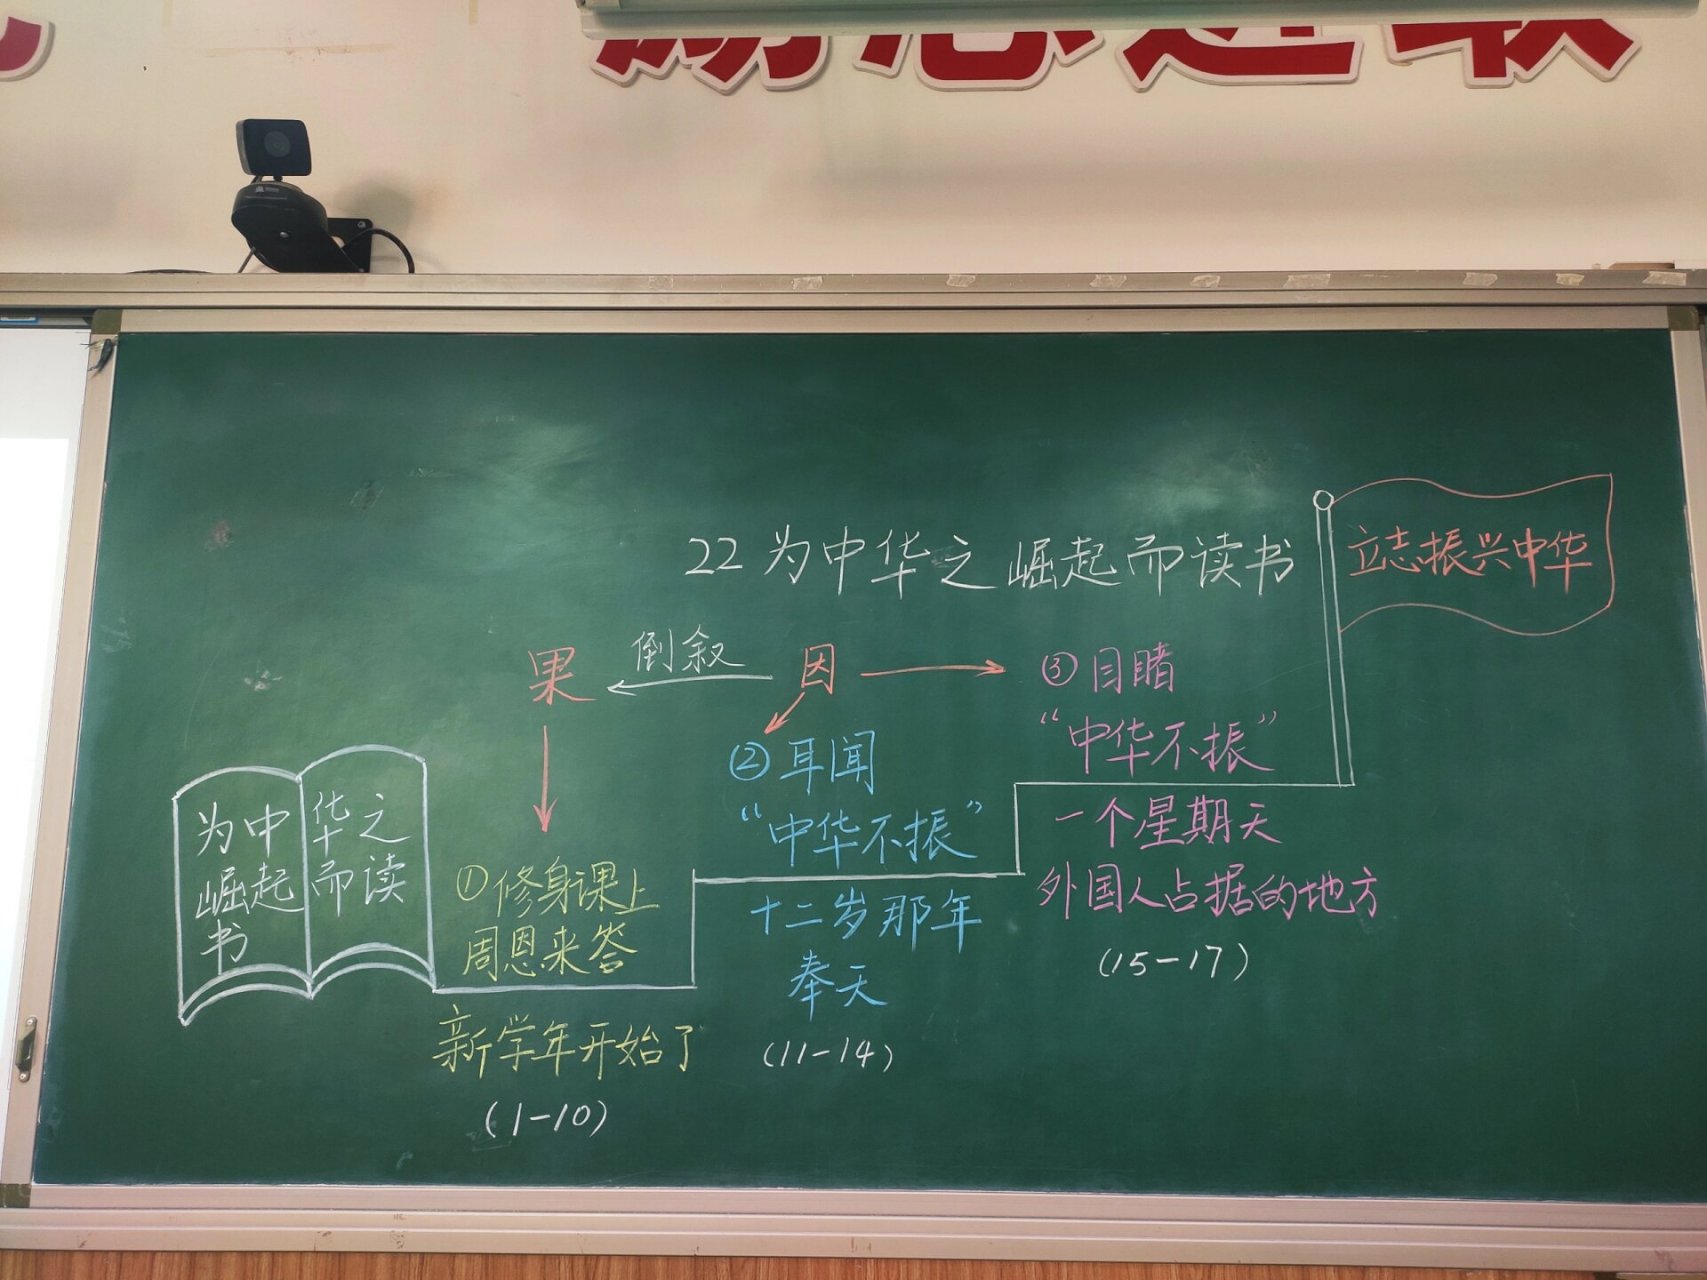 22 为中华之崛起而读书
立志振兴中华
果
倒叙
因
③目睹
“中华不振”
②耳闻
“中华不振”
一个星期天
外国人占据的地方
(15-17)
十二岁那年
奉天
(11-14)
①修身课上
周恩来答
新学年开始了
(1-10)
为中华之
崛起而读
书